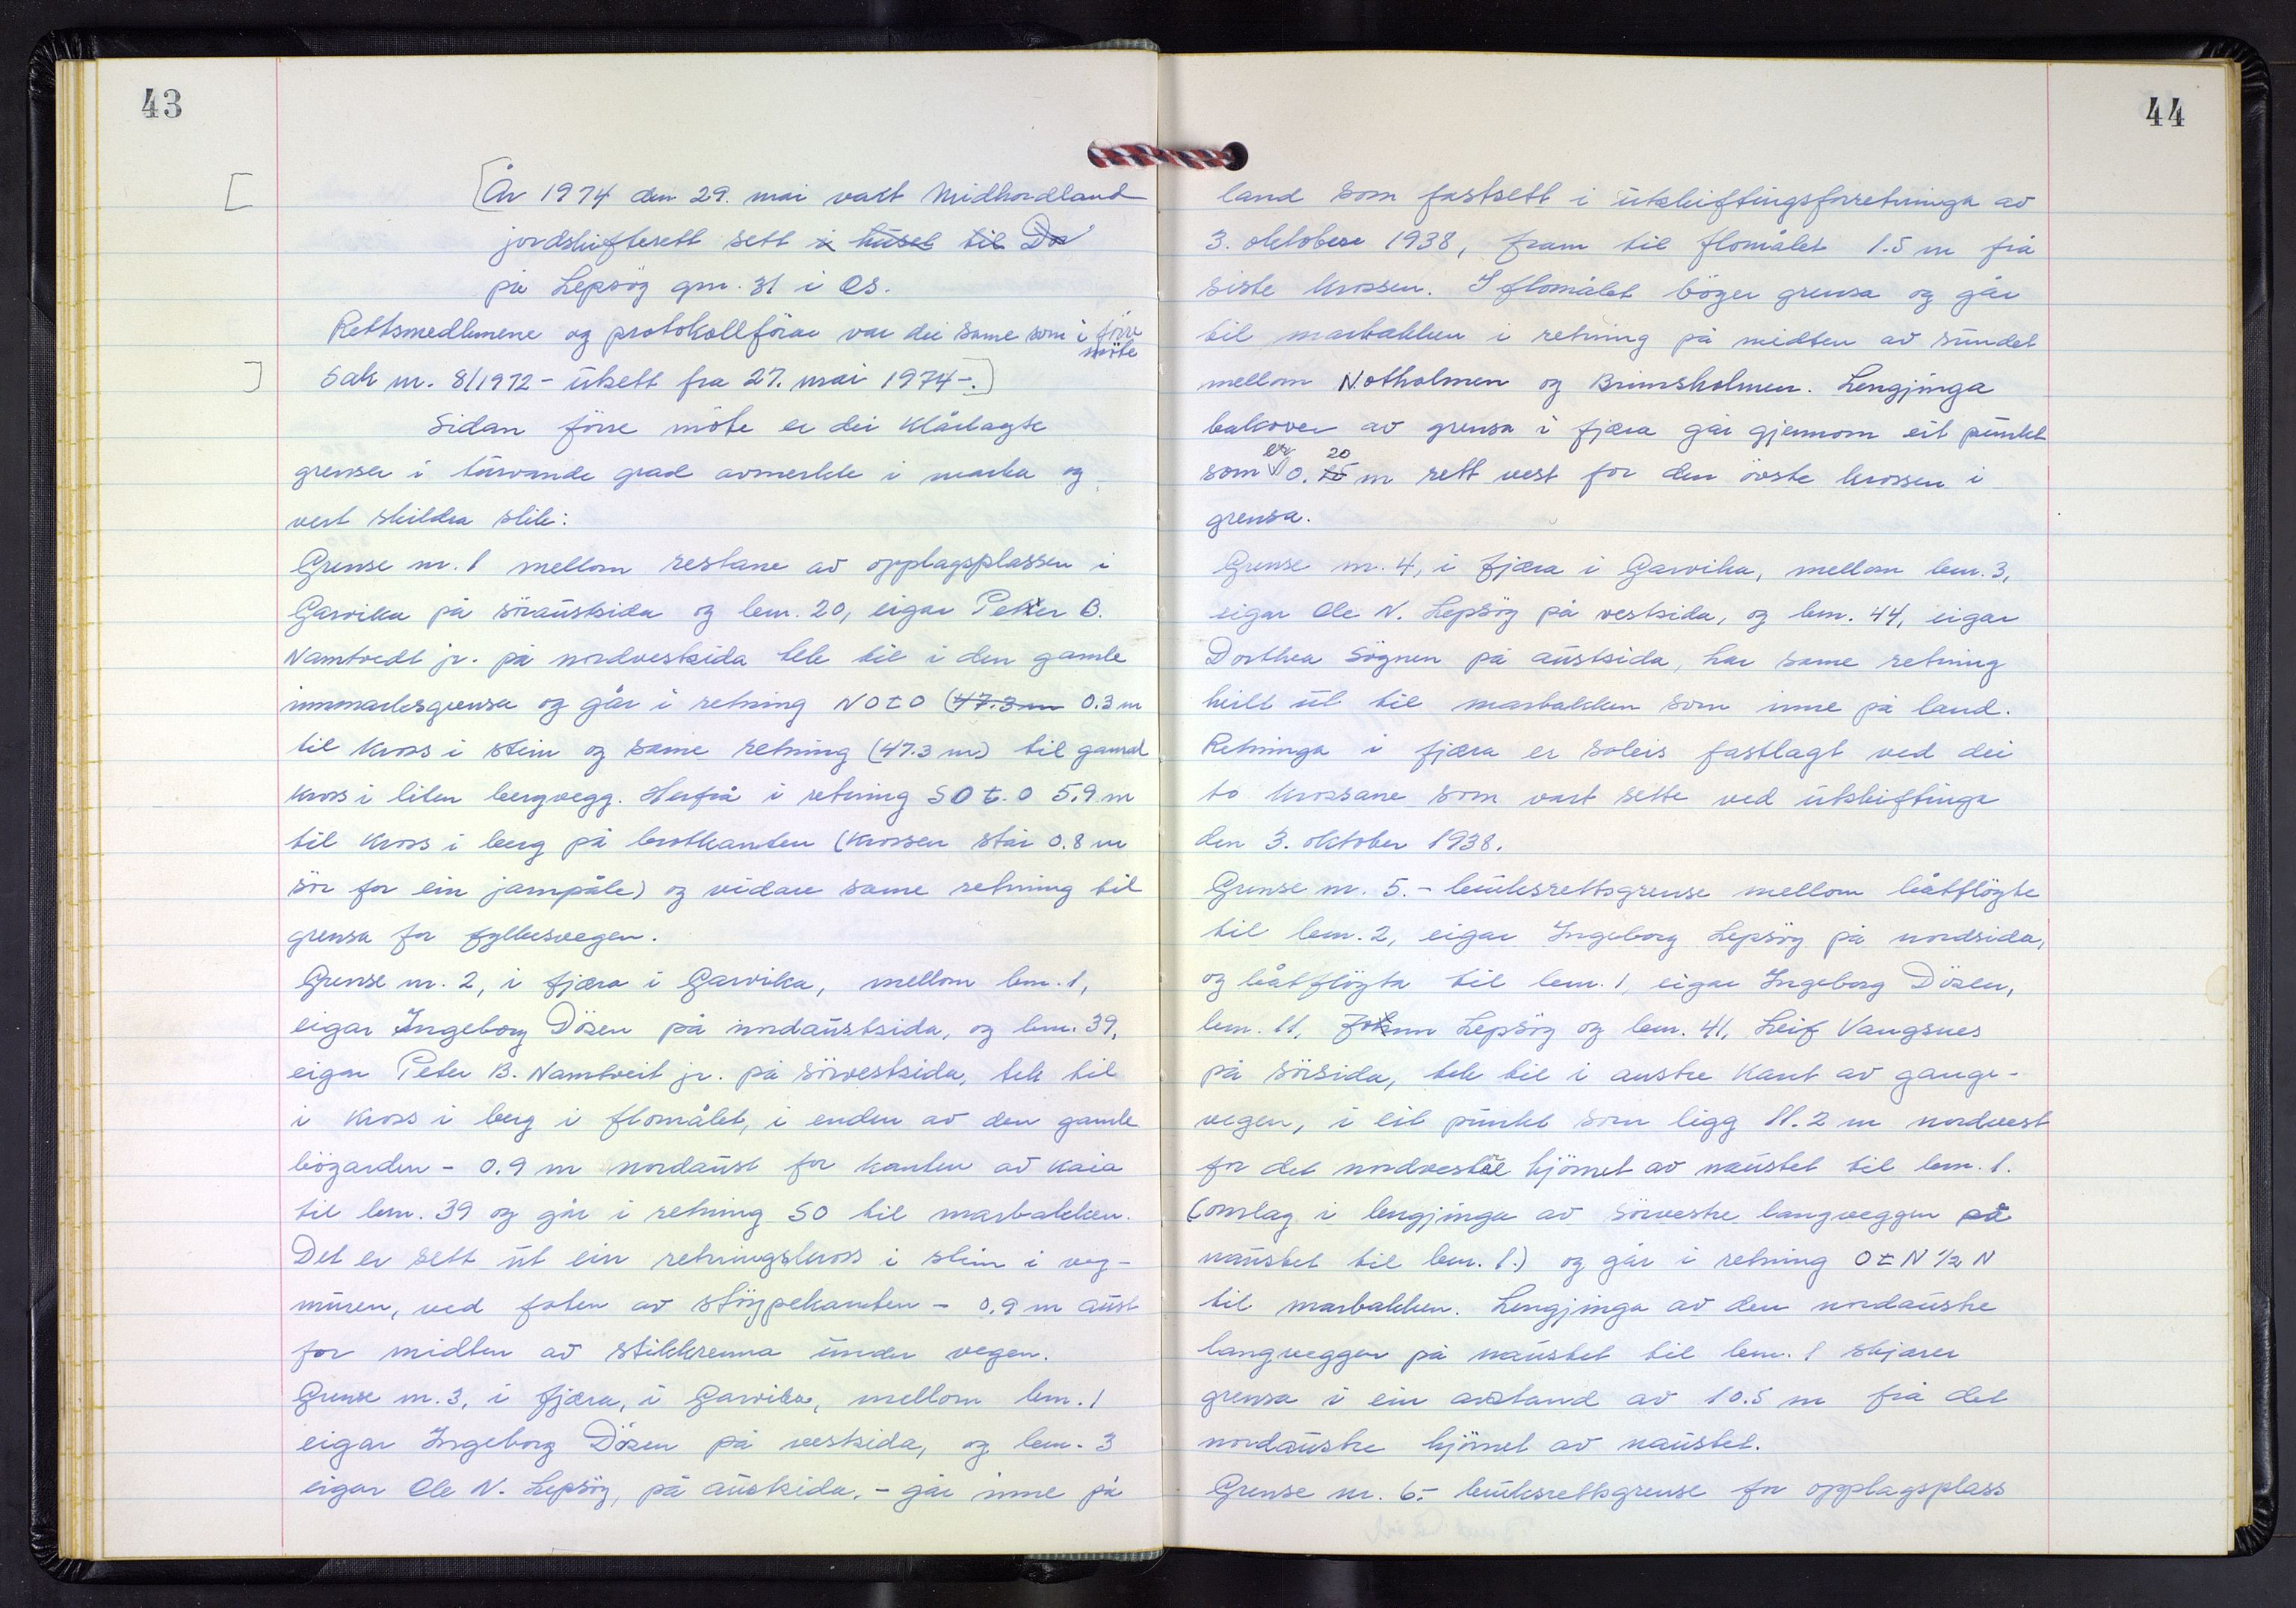 43
[År 1974 den 29. mai vart Midhordland
jordskifterett sett i huset til Da
på Lepsöy gnr. 31 i Os.
Rettsmedlemene og protokollförar var dei same som i förre
möte
Sak nr. 8/1972 - utsett fra 27. mai 1974-.]
Sidan förre möte er dei klårlagte
grenser i turvande grad avmerkte i marka og
vert skildra slik:
Grense nr. 1 mellom restane av opplagsplassen i
Garvika på söraustsida og bnr. 20, eigar Petter B.
Namtvedt jr. på nordvestsida tek til i den gamle
innmarksgrensa og går i retning NOtO (47.3 m 0.3 m
til kross i stein og same retning (47.3 m) til gamal
kross i liten bergvegg. Herfrå i retning SO t. O 5.9 m
til kross i berg på brotkanten (krossen står 0.8 m
sör for ein jarnpåle) og vidare same retning til
grensa for fylkesvegen.
Grense nr. 2, i fjæra i Garvika, mellom bnr. 1,
eigar Ingeborg Dösen på nordaustsida, og bnr. 39,
eigar Peter B. Namtveit jr. på sörvestsida, tek til
i kross i berg i flomålet, i enden av den gamle
bögarden - 0.9 m nordaust for kanten av kaia
til bnr. 39 og går i retning SO til marbakken.
Det er sett ut ein retningskross i stein i veg-
muren, ved foten av stöypekanten - 0.9 m aust
for midten av stikkrenna under vegen.
Grense nr. 3, i fjæra, i Garvika, mellom bnr. 1
eigar Ingeborg Dösen på vestsida, og bnr. 3
eigar Ole N. Lepsöy, på austsida. - går inne på
44
land som fastsett i utskiftingsforretninga av
3. oktober 1938, fram til flomålet 1.5 m frå
siste krossen. I flomålet böyer grensa og går
til marbakken i retning på midten av sundet
mellom Notholmen og Brimsholmen. Lengjinga
bakover av grensa i fjæra går gjennom eit punkt
er 20
som 0.15 m rett vest for den övste krossen i
grensa.
Grense nr. 4, i fjæra i Garvika, mellom bnr. 3,
eigar Ole N. Lepsöy på vestsida, og bnr. 44, eigar
Dorthea Sögnen på austsida, har same retning
heilt ut til marbakken som inne på land.
Retninga i fjæra er soleis fastlagt ved dei
to krossane som vart sette ved utskiftinga
den 3. oktober 1938.
Grense nr. 5. - bruksrettsgrense mellom båtflögte
til bnr. 2, eigar Ingeborg Lepsöy på nordsida,
og båtflögta til bnr. 1, eigar Ingeborg Dösen,
bnr. 11, Johnn Lepsöy og bnr. 41, Leif Vangsnes
på sörsida, tek til i austre kant av gange-
vegen, i eit punkt som ligg 11.2 m nordvest
for det nordvestre hjörnet av naustet til bnr. 1.
(omlag i lengjinga av sörvestre langveggen på
naustet til bnr. 1.) og går i retning OtN ½ N
til marbakken. Lengjinga av den nordaustre
langveggen på naustet til bnr. 1 skjærer
grensa i ein avstand av 10.5 m frå det
nordaustre hjörnet av naustet.
Grense nr. 6. - bruksrettsgrense for opplagsplass